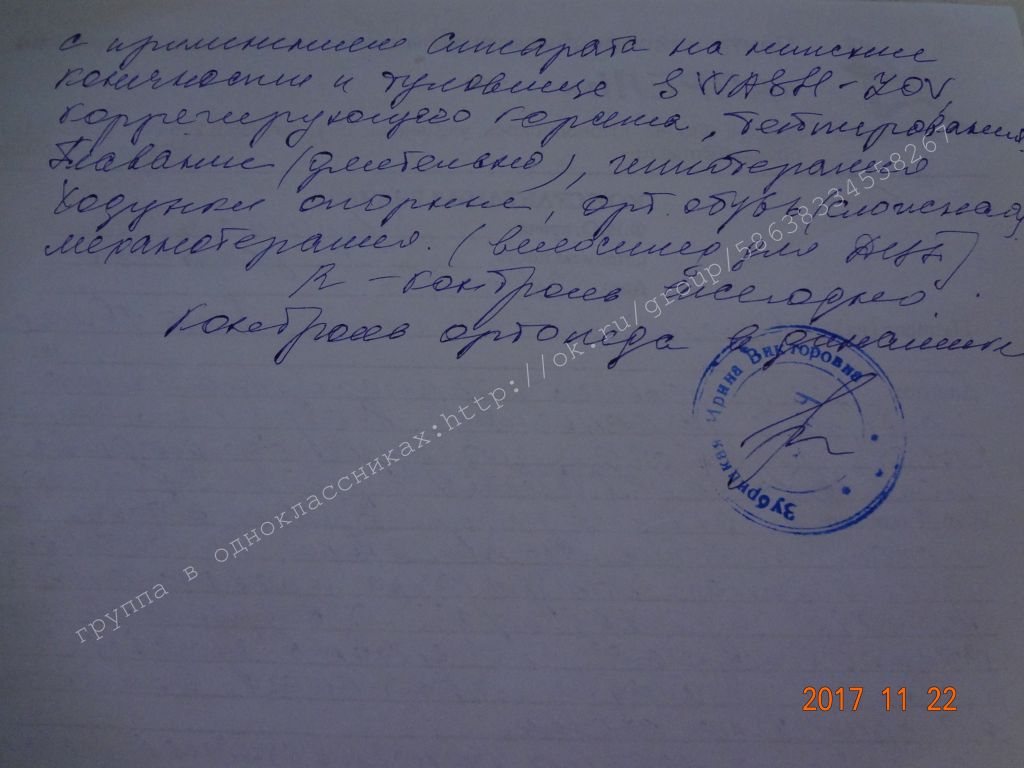 с применением аппарата на нижние
конечности и туловище SWASH-ЗОV,
корригирующего корсета, тейпирование,
Плавание (длительно), иппотерапия
Ходунки опорные, орт. обувь сложная,
механотерапия. (велосипед для ДЦП)
R-контроль ежегодно.
Контроль ортопеда в динамике
Зубрицкая Ирина Викторовна
группа в одноклассниках:http://ok.ru/group/58638334558267
2017 11 22